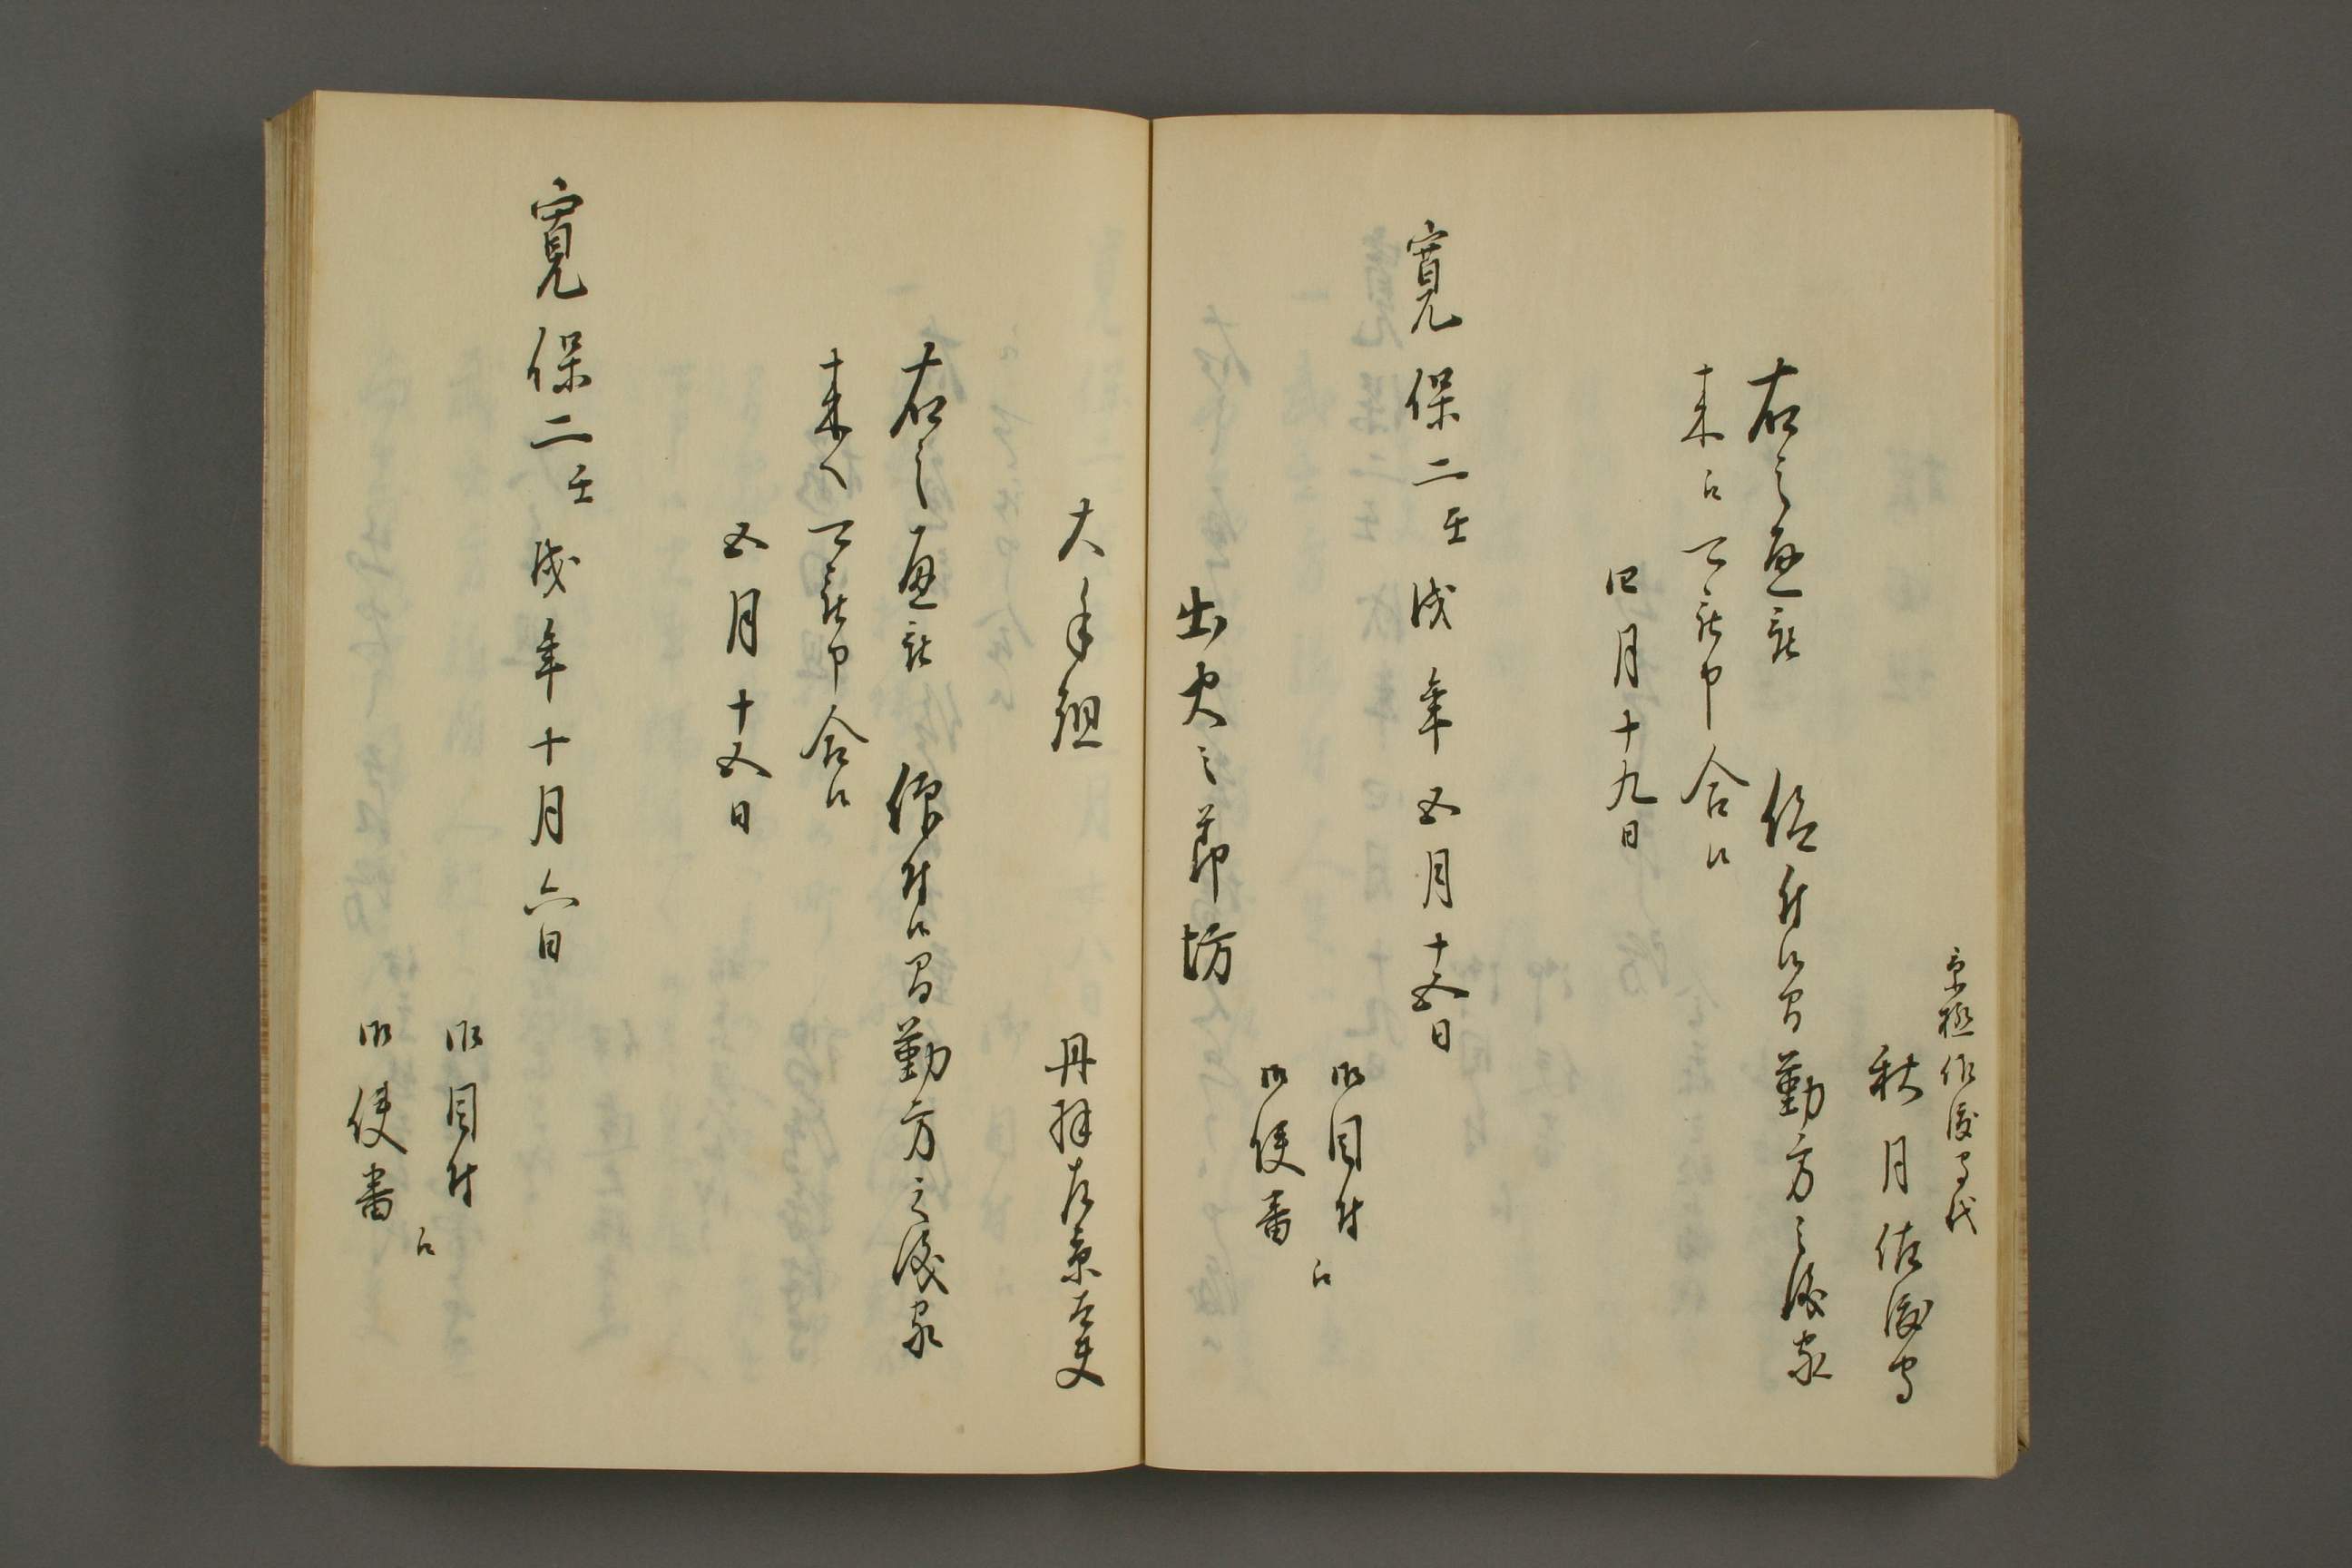 京極佐渡守代
秋月佐渡守
右之通被 仰付候間勤方之儀家
来江可被申合候
四月十九日
寛保二壬戌年五月十五日
御目付江
御使番
出火之節防
大手組
丹羽左京大夫
右之通被 仰付候間勤方之儀家
来へ可被申合候
五月十五日
寛保二壬戌年十月六日
御目付江
御使番